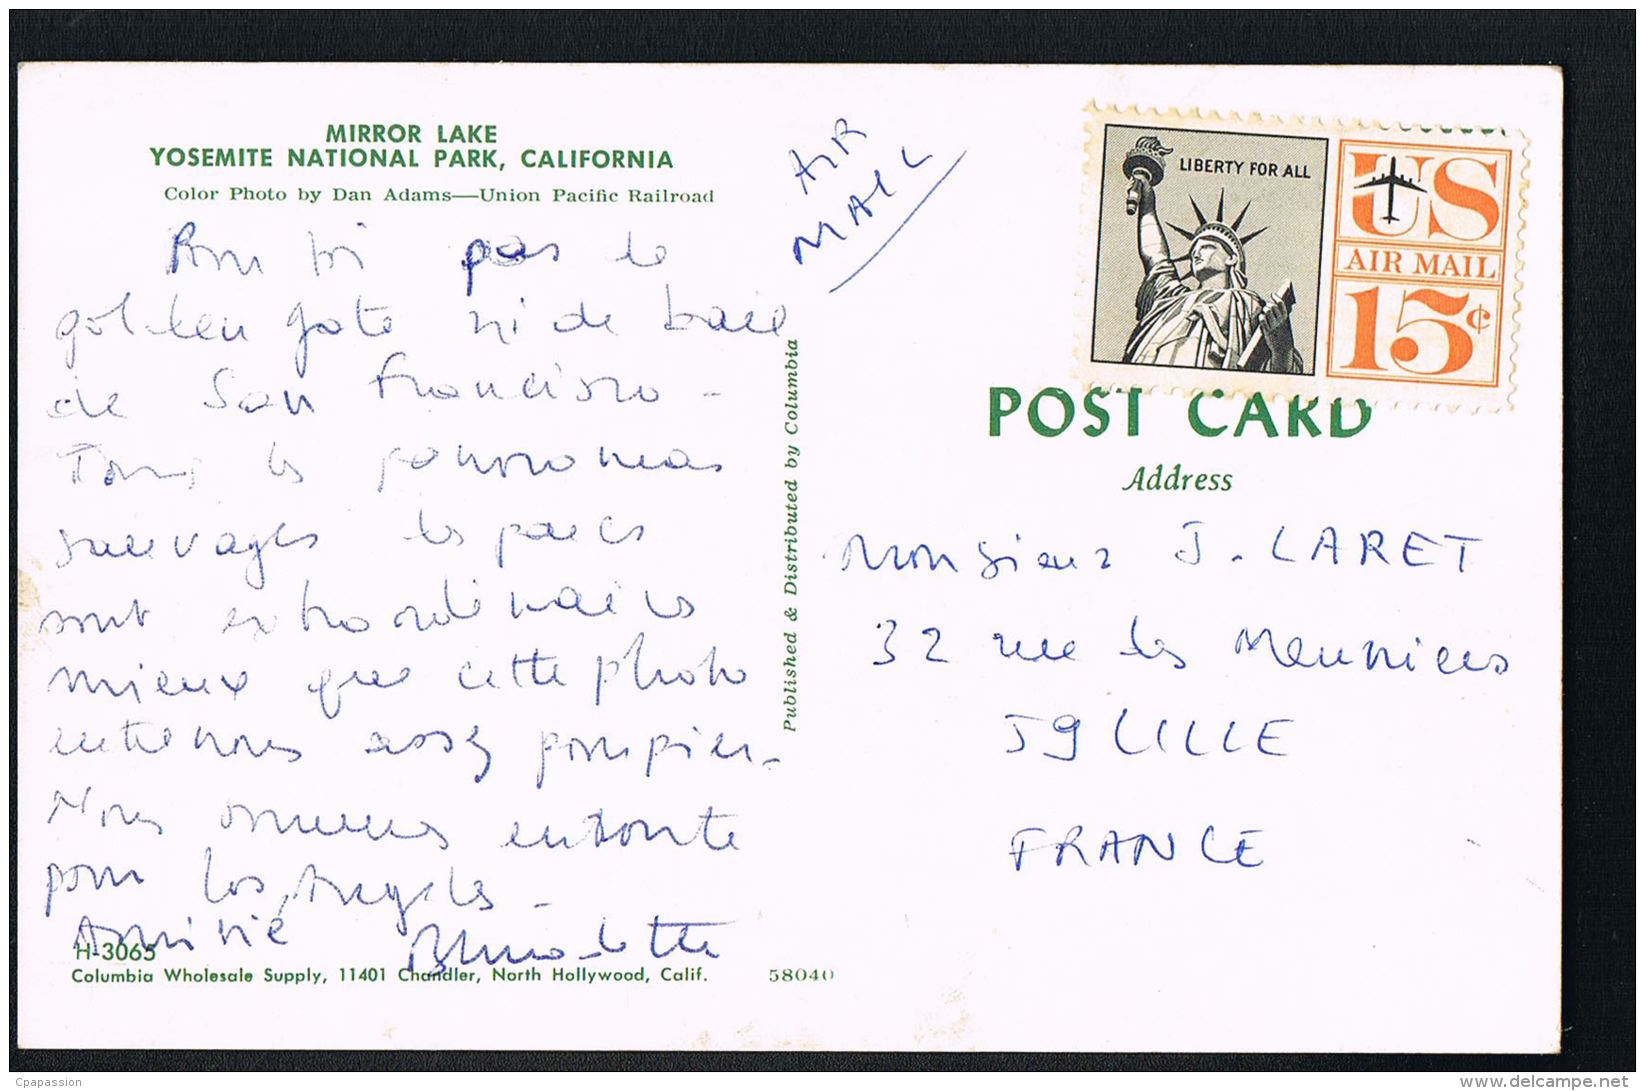 MIRROR LAKE
YOSEMITE NATIONAL PARK, CALIFORNIA
Color Photo by Dan Adams—Union Pacific Railroad
pas le
golden gate ni de baie
de San Francisco -
Tous les panoramas
sauvages les parcs
sont extraordinaires
mieux que cette photo
entre nous assez pompier -
Nous sommes en route
pour Los Angeles -
Amitié Bernadette
H-3065
Columbia Wholesale Supply, 11401 Chandler, North Hollywood, Calif.
58040
Published & Distributed by Columbia
AIR
MAIL
LIBERTY FOR ALL
US
AIR MAIL
15¢
POST CARD
Address
Monsieur J. LARET
32 rue des Meuniers
59 LILLE
FRANCE
Cpapassion
www.delcampe.net